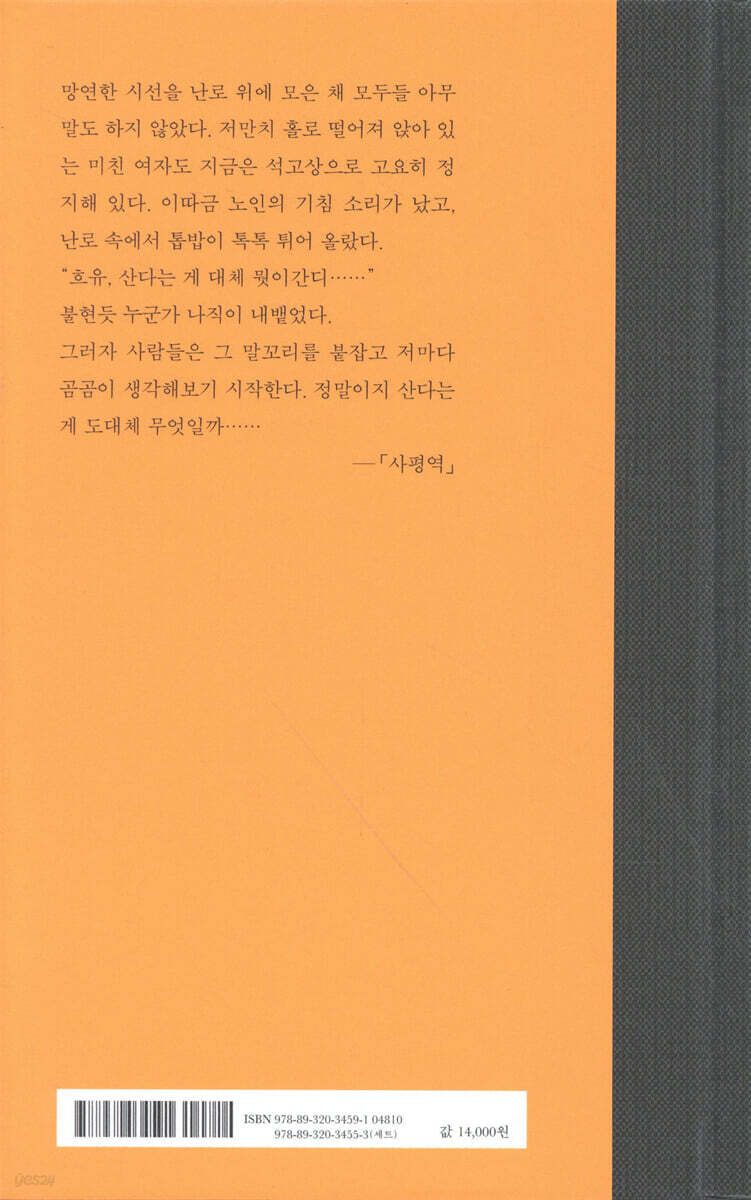 망연한 시선을 난로 위에 모은 채 모두들 아무
말도 하지 않았다. 저만치 홀로 떨어져 앉아 있
는 미친 여자도 지금은 석고상으로 고요히 정
지해 있다. 이따금 노인의 기침 소리가 났고,
난로 속에서 톱밥이 톡톡 튀어 올랐다.
“흐유, 산다는 게 대체 뭣이간디……”
불현듯 누군가 나직이 내뱉었다.
그러자 사람들은 그 말꼬리를 붙잡고 저마다
곰곰이 생각해보기 시작한다. 정말이지 산다는
게 도대체 무엇일까……
—「사평역」
ISBN 978-89-320-3459-1 04810
978-89-320-3455-3(세트)
값 14,000원
yes24